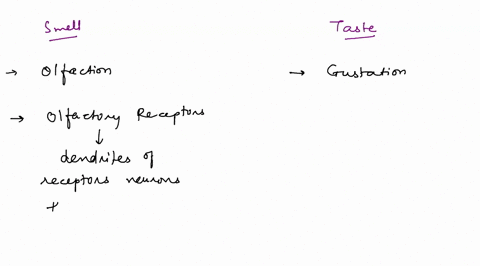 Smell
→ Olfaction
→ Olfactory Receptors
↓
dendrites of
receptors neurons
+
Taste
→ Gustation